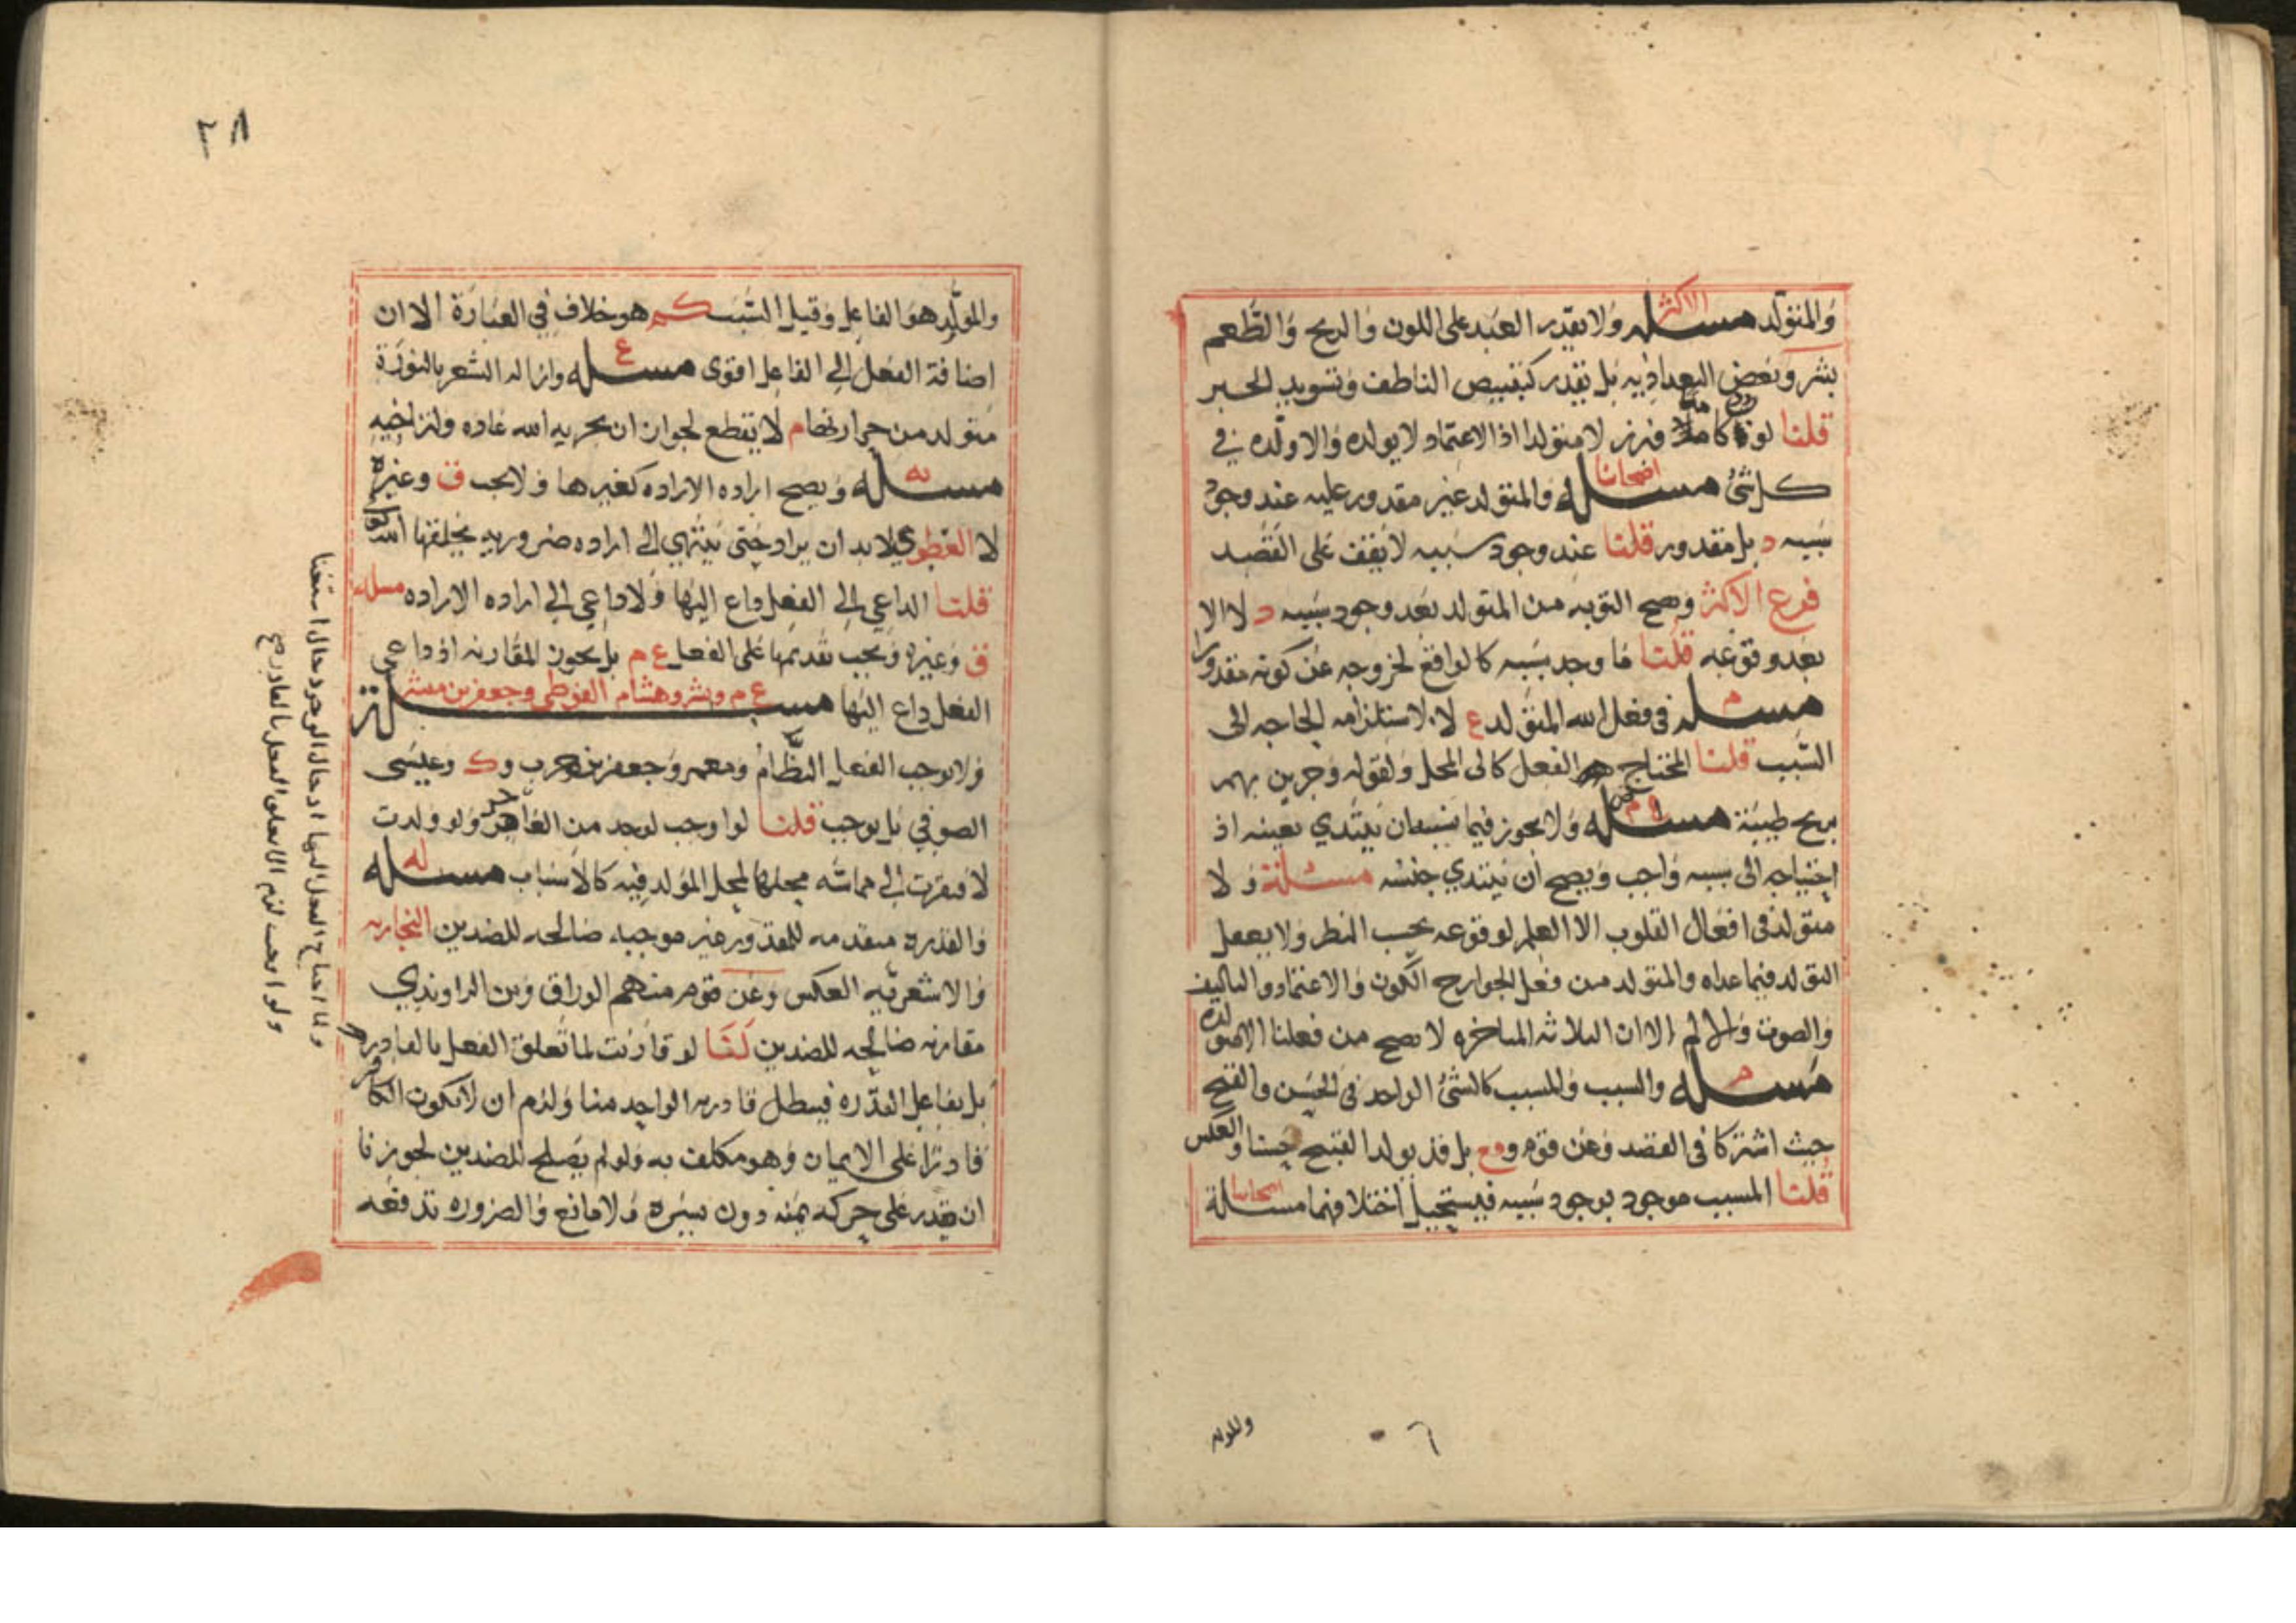 والمتولد مسئله الاكثر ولا يقدر العبد على اللون والريح والطعم
بشر وبعض البغداذيه بل يقدر كتبييض الناطف وتسويد الحبر
قلنا لو كامنا فبرز لا متولدا اذ الاعتماد لا يولده والا ولده في
كل شئ مسئله اصحابنا والمتولد غير مقدور عليه عند وجود
سببه د بل مقدور قلنا عند وجود سببه لا يقف على القصد
فرع الاكثر وتصح التوبه من المتولد بعد وجود سببه د لا الا
بعد وقوعه قلنا ما وجد سببه كالواقع لخروجه عن كونه مقدورا
مسئله م في فعل الله المتولد ع لا لاستلزامه الحاجه الى
السبب قلنا المحتاج هو الفعل كالى المحل ولقوله وجرين بهم
بريح طيبة مسئله م ولا يجوز فيما بسبب ان يبتدي بعينه اذ
احتياجه الى سببه واجب ويصح ان يبتدي جنسه مسئلة ولا
متولد في افعال القلوب الا العلم لوقوعه بحسب النظر ولا يعقل
التولد فيما عداه والمتولد من فعل الجوارح الكون والاعتماد والتاليف
والصوت والالم الا ان الثلاثه المتاخره لا تصح من فعلنا الا متولده
مسئله م والسبب والمسبب كالشئ الواحد في الحسن والقبح
حيث اشتركا في القصد وعن قوم وع بل قد يولد القبيح حسنا والعكس
قلنا المسبب موجود بوجود سببه فيستحيل اختلافهما مسئلة اصحابنا
والمولد
والمولد هو الفاعل وقيل السبب كم هو خلاف في العبارة الا ان
اضافة الفعل الى الفاعل اقوى مسئله ع وازاله الشعر بالنورة
متولد من حرارتها م لا يقطع لجواز ان يجريه الله عاده ولتراخيه
مسئله يه ويصح اراده الاراده كغيرها ولا يجب ق وغيره
لا العطوي لا بد ان يراد حتى ينتهي الى اراده ضروريه يخلقها الله
قلنا الداعي الى الفعل داع اليها ولا داعي الى اراده الاراده مسئله
ق وغيره ويجب تقديمها على الفعل ع م بل يجوز المقارنه اذ داعي
الفعل داع اليها مسئلة ع م وبشر وهشام الفوطي وجعفر بن مبشر
ولا يوجب الفعل النظام ومعمر وجعفر بن حرب وك وعيسى
الصوفي بل يوجب قلنا لو اوجب لوجد من العاجز ولو ولدت
لافتقرت الى مماسه محلها لمحل المولد فيه كالاسباب مسئله له
والقدره متقدمه للمقدور غير موجبه صالحه للضدين النجاريه
والاشعريه العكس وعن قوم منهم الوراق وبن الراوندي
مقارنه صالحه للضدين لنا لو قارنت لما تعلق الفعل بالقادر
بل بفاعل القدره فيبطل قادريه الواحد منا ولزم ان لا يكون الكافر
قادرا على الايمان وهو مكلف به ولو لم يصلح للضدين لجوزنا
ان يقدر على حركه يمنه دون يسره ولا مانع والضروره تدفعه
ولما احتاج الفعل اليها اذ حال الوجود حال استغنا
ولو اوجبت لزم الا يتعلق الفعل بالقادر صح
٢٨